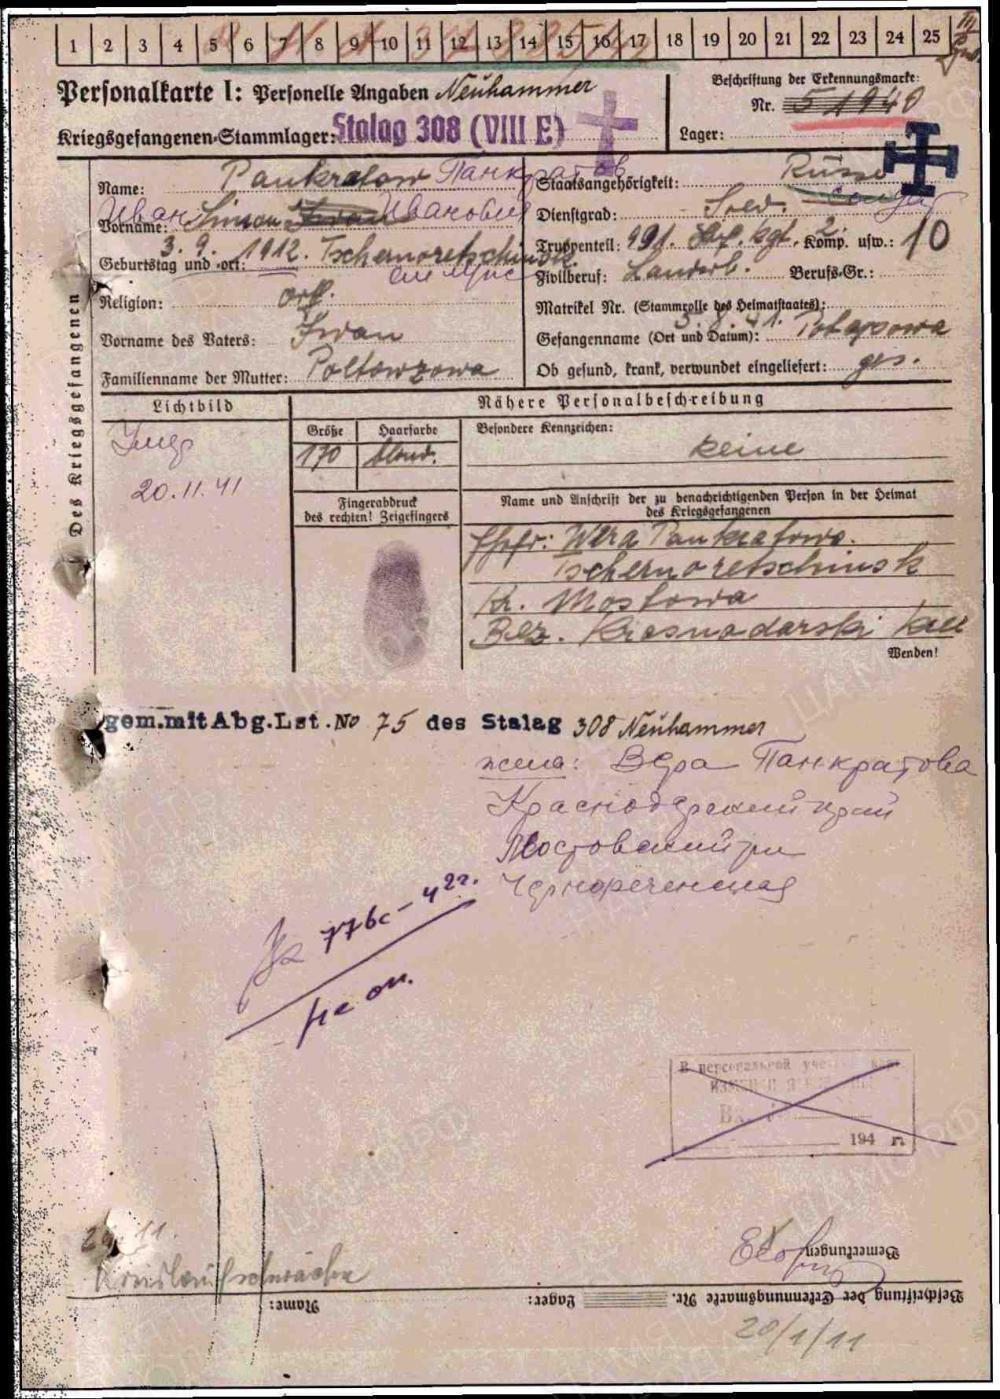 1 2 3 4 5 6 7 8 9 10 11 12 13 14 15 16 17 18 19 20 21 22 23 24 25
Personalkarte I: Personelle Angaben Neuhammer
Beschriftung der Erkennungsmarke:
Nr. 51940
Kriegsgefangenen-Stammlager: Stalag 308 (VIII E)
Lager:
Des Kriegsgefangenen
Name: Pankratow Панкратов
Vorname: Иван Simon Iwan Иванович
Geburtstag und -ort: 3. 9. 1912. Tschernoretschinsk
Religion: orth.
Vorname des Vaters: Iwan
Familienname der Mutter: Poltowzowa
Staatsangehörigkeit: Russe
Dienstgrad: Sold. солдат
Truppenteil: 991. Inf. Rgt. 2. Komp. usw.: 10
Zivilberuf: Landw. Berufs-Gr.:
Matrikel Nr. (Stammrolle des Heimatstaates):
Gefangenname (Ort und Datum): 5. 8. 41.
Ob gesund, krank, verwundet eingeliefert: ges.
Lichtbild
Умер
20.11.41
Nähere Personalbeschreibung
Größe
170
Haarfarbe
blond.
Besondere Kennzeichen:
keine
Fingerabdruck
des rechten! Zeigefingers
Name und Anschrift der zu benachrichtigenden Person in der Heimat
des Kriegsgefangenen
Ehefr: Wera Pankratowa.
Tschernoretschinsk
Kr. Mostowa
Bez. Krasnodarski Krei
Wenden!
gem.mit Abg.Lst.No 75 des Stalag 308 Neuhammer
жена: Вера Панкратова
Краснодарский край
Мостовский рн
Чернореченская
776с-42г.
не оп.
В персональной
194 г.
Bemerkungen:
Kreislaufschwäche
Beschriftung der Erkennungsmarke Nr. Lager: Name:
20/1/11